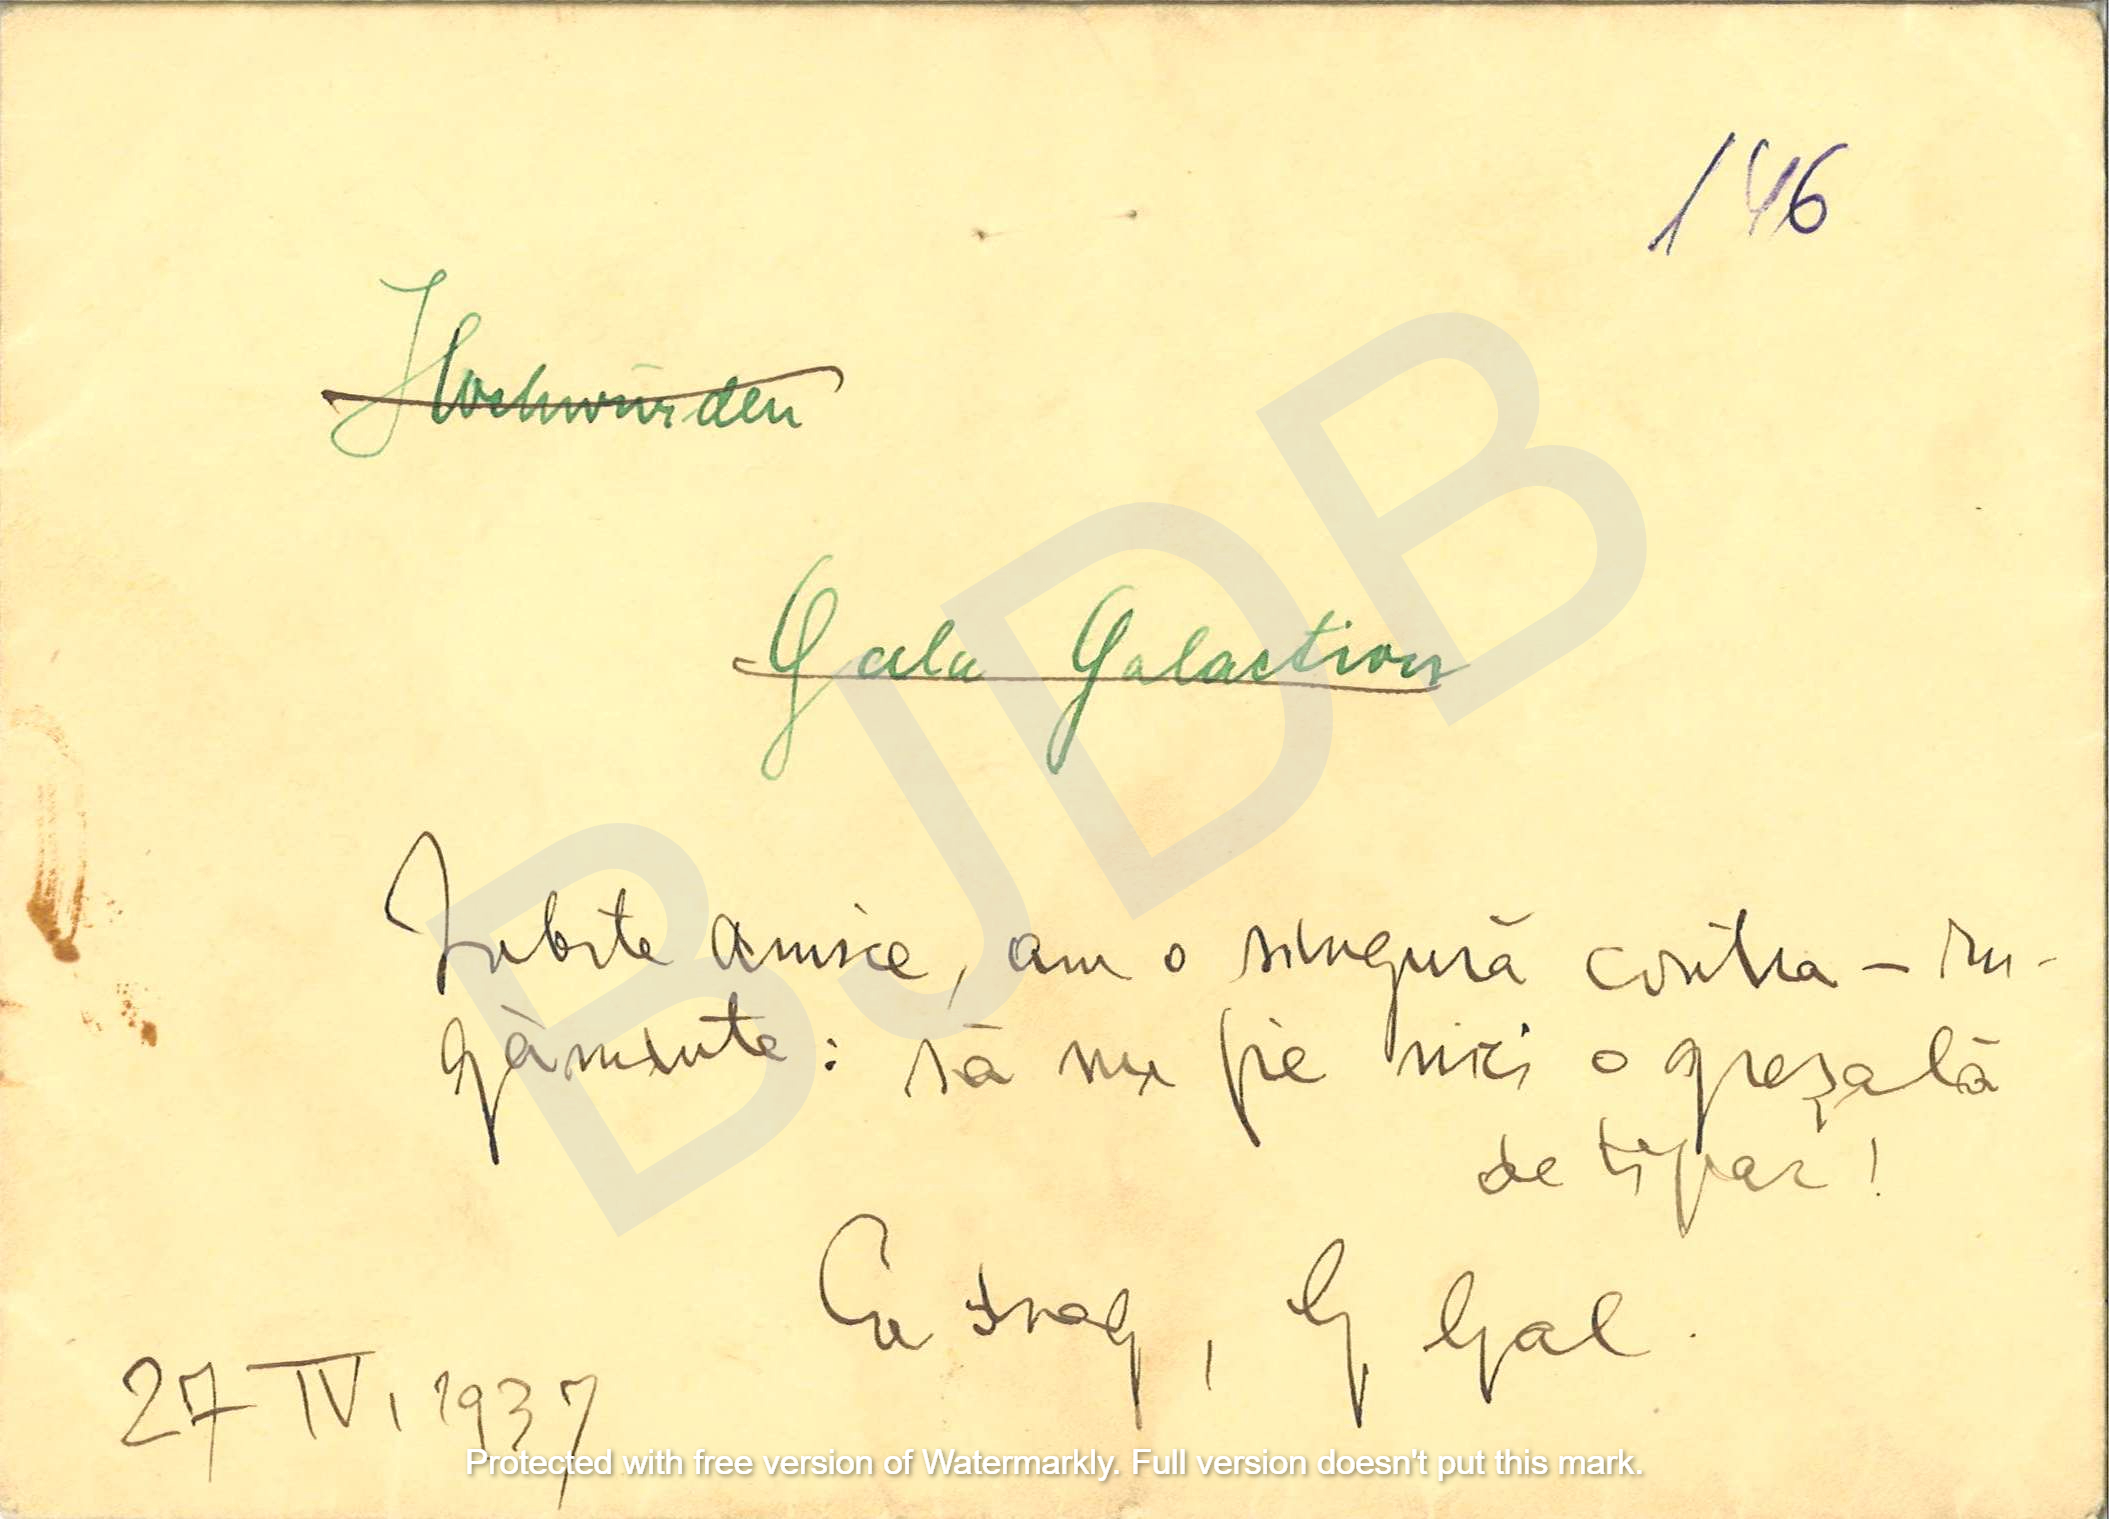 146
Hochwürden
Gala Galaction
Iubite amice, am o singură contra – ru-
găminte: să nu fie nici o greșală
de tipar!
Cu drag, G Gal.
27 IV, 1937
BJDB
Protected with free version of Watermarkly. Full version doesn't put this mark.